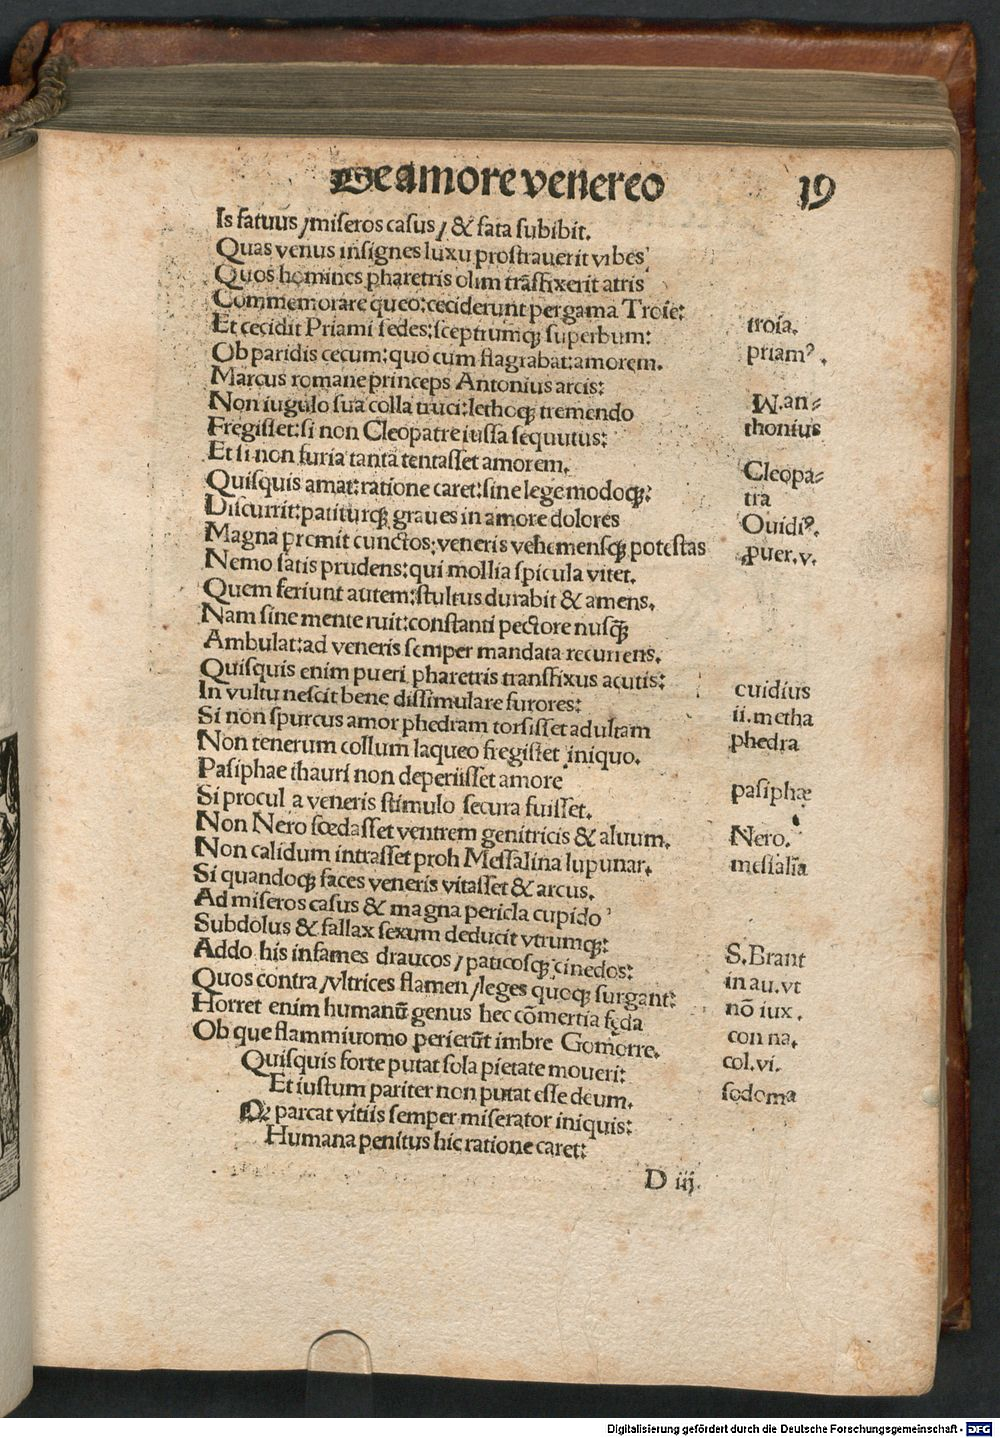 De amore venereo 19
Is fatuus / miseros casus / & fata subibit.
Quas venus insignes luxu prostrauerit vrbes
Quos homines pharetris olim trãsfixerit atris
Commemorare queo: ceciderunt pergama Troie: troia.
Et cecidit Priami sedes: sceptrumqꝫ superbum: priamꝰ.
Ob paridis cecum: quo cum flagrabat: amorem.
Marcus romane princeps Antonius arcis: M. an⸗
Non iugulo sua colla truci: lethoqꝫ tremendo thonius
Fregisset: si non Cleopatre iussa sequutus:
Et si non furia tanta tentasset amorem. Cleopa⸗
Quisquis amat: ratione caret: sine lege modoqꝫ: tra
Discurrit: patiturqꝫ graues in amore dolores Ouidiꝰ.
Magna premit cunctos: veneris vehemensqꝫ potestas puer. v.
Nemo satis prudens: qui mollia spicula vitet.
Quem feriunt autem: stultus durabit & amens.
Nam sine mente ruit: constanti pectore nusq̃
Ambulat: ad veneris semper mandata recurrens.
Quisquis enim pueri pharetris transfixus acutis:
In vultu nescit bene dissimulare furores: cuidius
Si non spurcus amor phedram torsisset adultam ii. metha
Non tenerum collum laqueo fregisset iniquo. phedra
Pasiphae thauri non deperiisset amore
Si procul a veneris stimulo secura fuisset. pasiphæ
Non Nero fœdasset ventrem genitricis & aluum. Nero.
Non calidum intrasset proh Messalina lupunar. messalĩa
Si quandoqꝫ faces veneris vitasset & arcus.
Ad miseros casus & magna pericla cupido
Subdolus & fallax sexum deducit vtrumqꝫ:
Addo his infames draucos / paticosqꝫ cinedos: S. Brant
Quos contra / vltrices flamen / leges quoqꝫ surgant: in au. vt
Horret enim humanũ genus hec cõmertia fęda nõ iux.
Ob que flammiuomo perierũt imbre Gomorre. con na.
Quisquis forte putat sola pietate moueri: col. vi.
Et iustum pariter non putat esse deum. sodoma
parcat vitiis semper miserator iniquis:
Humana penitus hic ratione caret:
D iij.
Digitalisierung gefördert durch die Deutsche Forschungsgemeinschaft - DFG